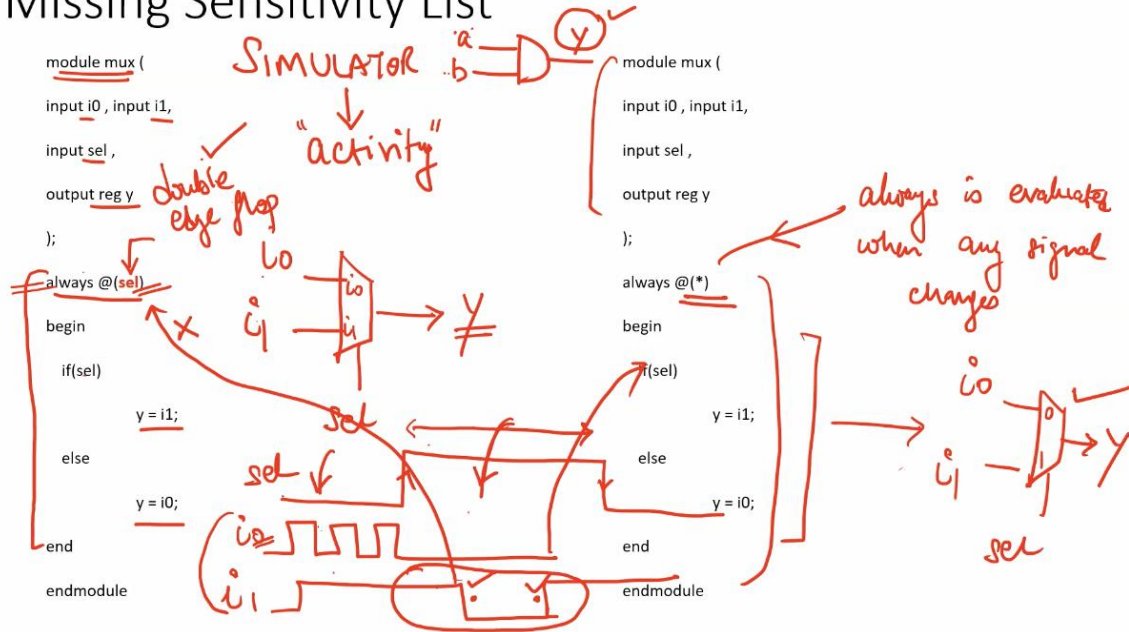 Missing Sensitivity List
module mux (
input i0 , input i1,
input sel ,
output reg y
);
always @(sel)
begin
if(sel)
y = i1;
else
y = i0;
end
endmodule
SIMULATOR
"activity"
double
edge flop
a
b
y
i0
i1
i0
i1
y
sel
sel
i0
i1
module mux (
input i0 , input i1,
input sel ,
output reg y
);
always @(*)
begin
if(sel)
y = i1;
else
y = i0;
end
endmodule
always is evaluates
when any signal
changes
i0
i1
0
1
y
sel